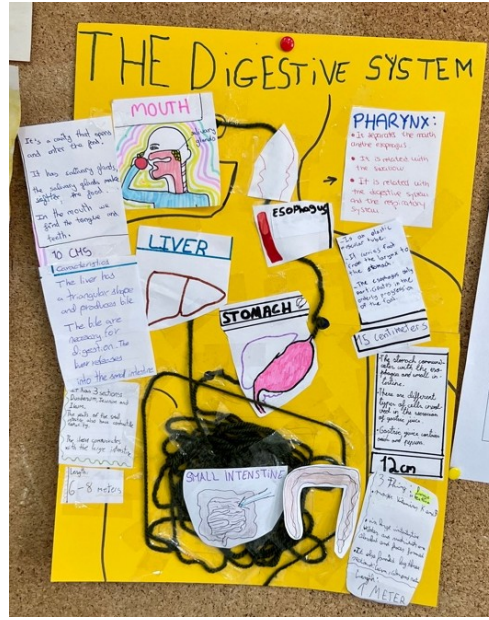 THE DiGESTIVE SYSTEM
MOUTH
salivary
glands
It's a cavity that opens
and enter the food.
It has salivary glands,
the salivary glands make
softer the food.
In the mouth we
find the tongue and
teeth.
10 CMS
PHARYNX:
It separates the mouth
and the esophagus.
It is related with
the swallow
It is related with
the digestive system
and the respiratory
system
ESOPHAGUS
Is an elastic
muscular tube.
It carries food
from the larynx to
the stomach.
The esophagus only
participates in the
of the food.
15 centimeters
LIVER
Caracteristics
The liver has
a triangular shape
and produces bile
The bile are
necessary for
digestion. The
liver releases
into the small intestine
STOMACH
The stomach communi-
cates with the eso-
phagus and small in-
testine.
There are different
types of cells
in the
of gastric juice.
Gastric juice contains
and pepsin.
12cm
has 3 sections
Duodenum, Jejunum and
Ileum.
The walls of the small
The ileum communicates
with the large intestine
Length:
6-8 meters
SMALL INTENSTINE
3 thing:
K and B
Length:
1 METER